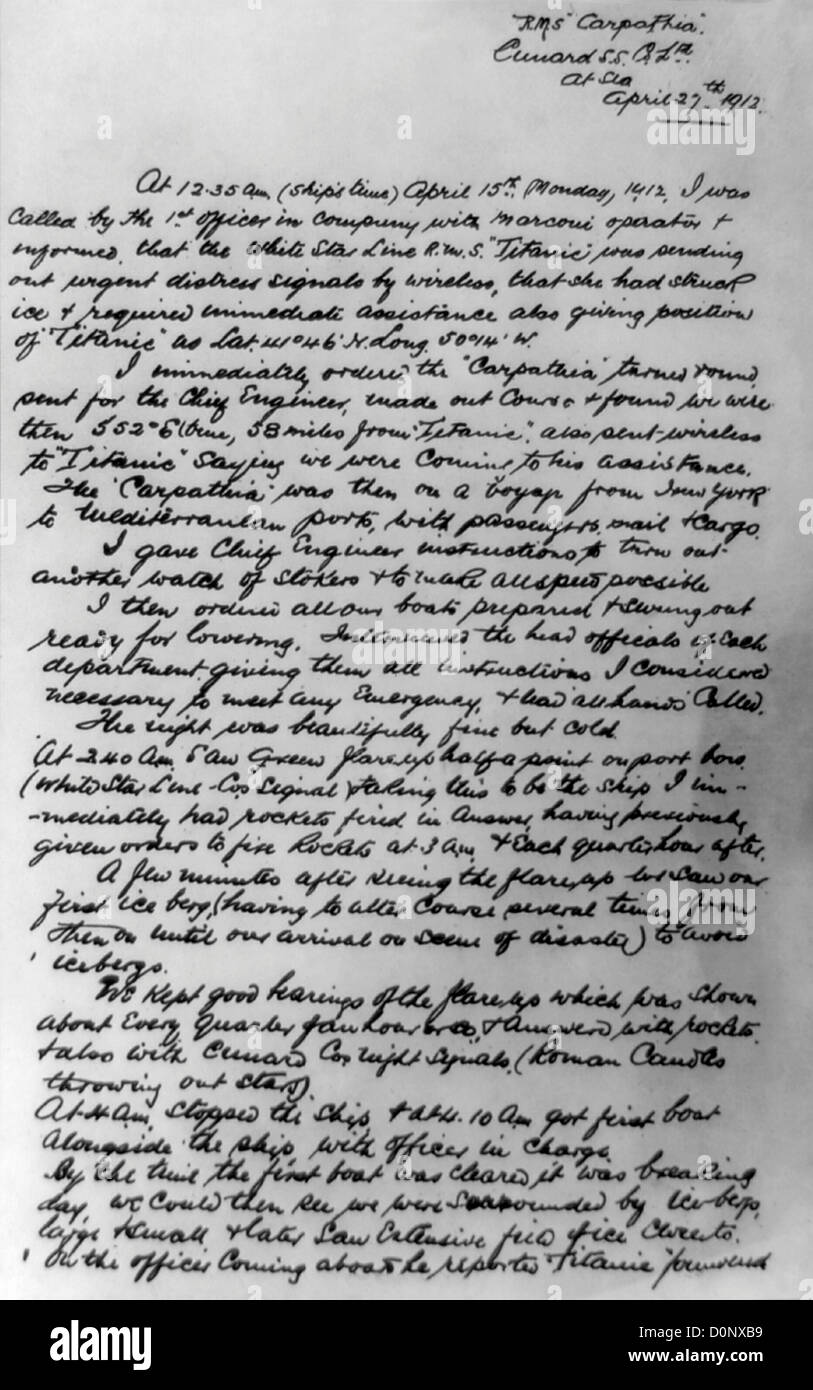 "R.M.S "Carpathia".
Cunard S.S. Co Ltd.
At Sea
April 27th 1912.
At 12.35 am (ship's time) April 15th Monday, 1912, I was
called by the 1st officer in company with Marconi operator &
informed that the White Star Line R.M.S. "Titanic" was sending
out urgent distress signals by wireless, that she had struck
ice & required immediate assistance also giving position
of "Titanic" as Lat. 41°46' N. Long. 50°14' W.
I immediately ordered the "Carpathia" turned round,
sent for the Chief Engineer, made out Course & found we were
then S 52° E (true, 58 miles from "Titanic". also sent wireless
to "Titanic" saying we were coming to his assistance.
The "Carpathia" was then on a voyage from New York
to Mediterranean ports, with passengers, mail & cargo.
I gave Chief Engineer instructions to turn out
another watch of stokers & to make all speed possible
I then ordered all our boats prepared & swung out
ready for lowering. the head officials of Each
department giving them all instructions I considered
necessary to meet any Emergency, & had all hands called.
The night was beautifully fine but cold.
At 2.40 Am, Saw Green flare up half a point on port bow.
(White Star Line Cos Signal) & taking this to be the ship I im-
-mediately had rockets fired in Answer, having previously
given orders to fire Rockets at 3 am & Each quarter hour after.
A few minutes after seeing the flare up we saw our
first ice berg, (having to alter Course several times from
then on until our arrival on scene of disaster) to avoid
icebergs.
We kept good bearings of the flare up which was shown
about Every Quarter of an hour or so, & Answered with rockets.
& also with Cunard Cos night Signals. (Roman Candles
throwing out Stars).
At 4 Am, Stopped the Ship, & at 4.10 Am got first boat
alongside the ship with officer in charge.
By the time the first boat was cleared it was breaking
day, we could then see we were surrounded by icebergs,
large & small & later Saw Extensive field of ice
On the officer Coming aboard he reported "Titanic" foundered
alamy
Image ID: D0NXB9
www.alamy.com